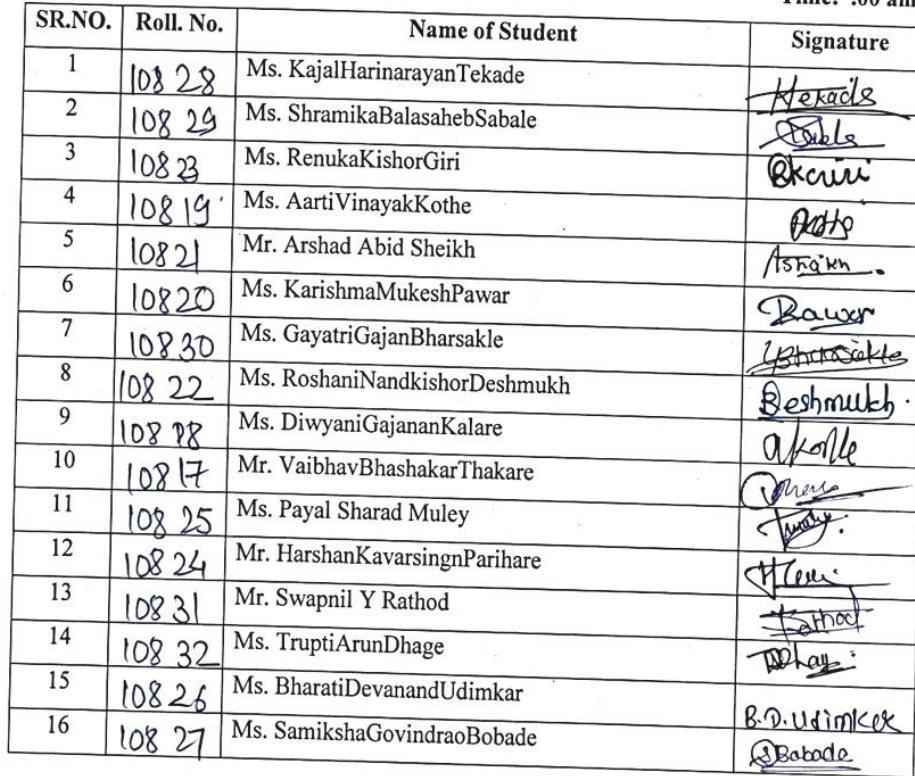 SR.NO. Roll. No. Name of Student Signature
1 10828 Ms. KajalHarinarayanTekade
2 10829 Ms. ShramikaBalasahebSabale
3 10823 Ms. RenukaKishorGiri
4 10819 Ms. AartiVinayakKothe
5 10821 Mr. Arshad Abid Sheikh
6 10820 Ms. KarishmaMukeshPawar
7 10830 Ms. GayatriGajanBharsakle
8 10822 Ms. RoshaniNandkishorDeshmukh Deshmukh.
9 Ms. DiwyaniGajananKalare
10 10817 Mr. VaibhavBhashakarThakare
11 10825 Ms. Payal Sharad Muley
12 10824 Mr. HarshanKavarsingnParihare
13 10831 Mr. Swapnil Y Rathod Rathod
14 10832 Ms. TruptiArunDhage
15 10826 Ms. BharatiDevanandUdimkar B.D.Udimker
16 10827 Ms. SamikshaGovindraoBobade SBabade